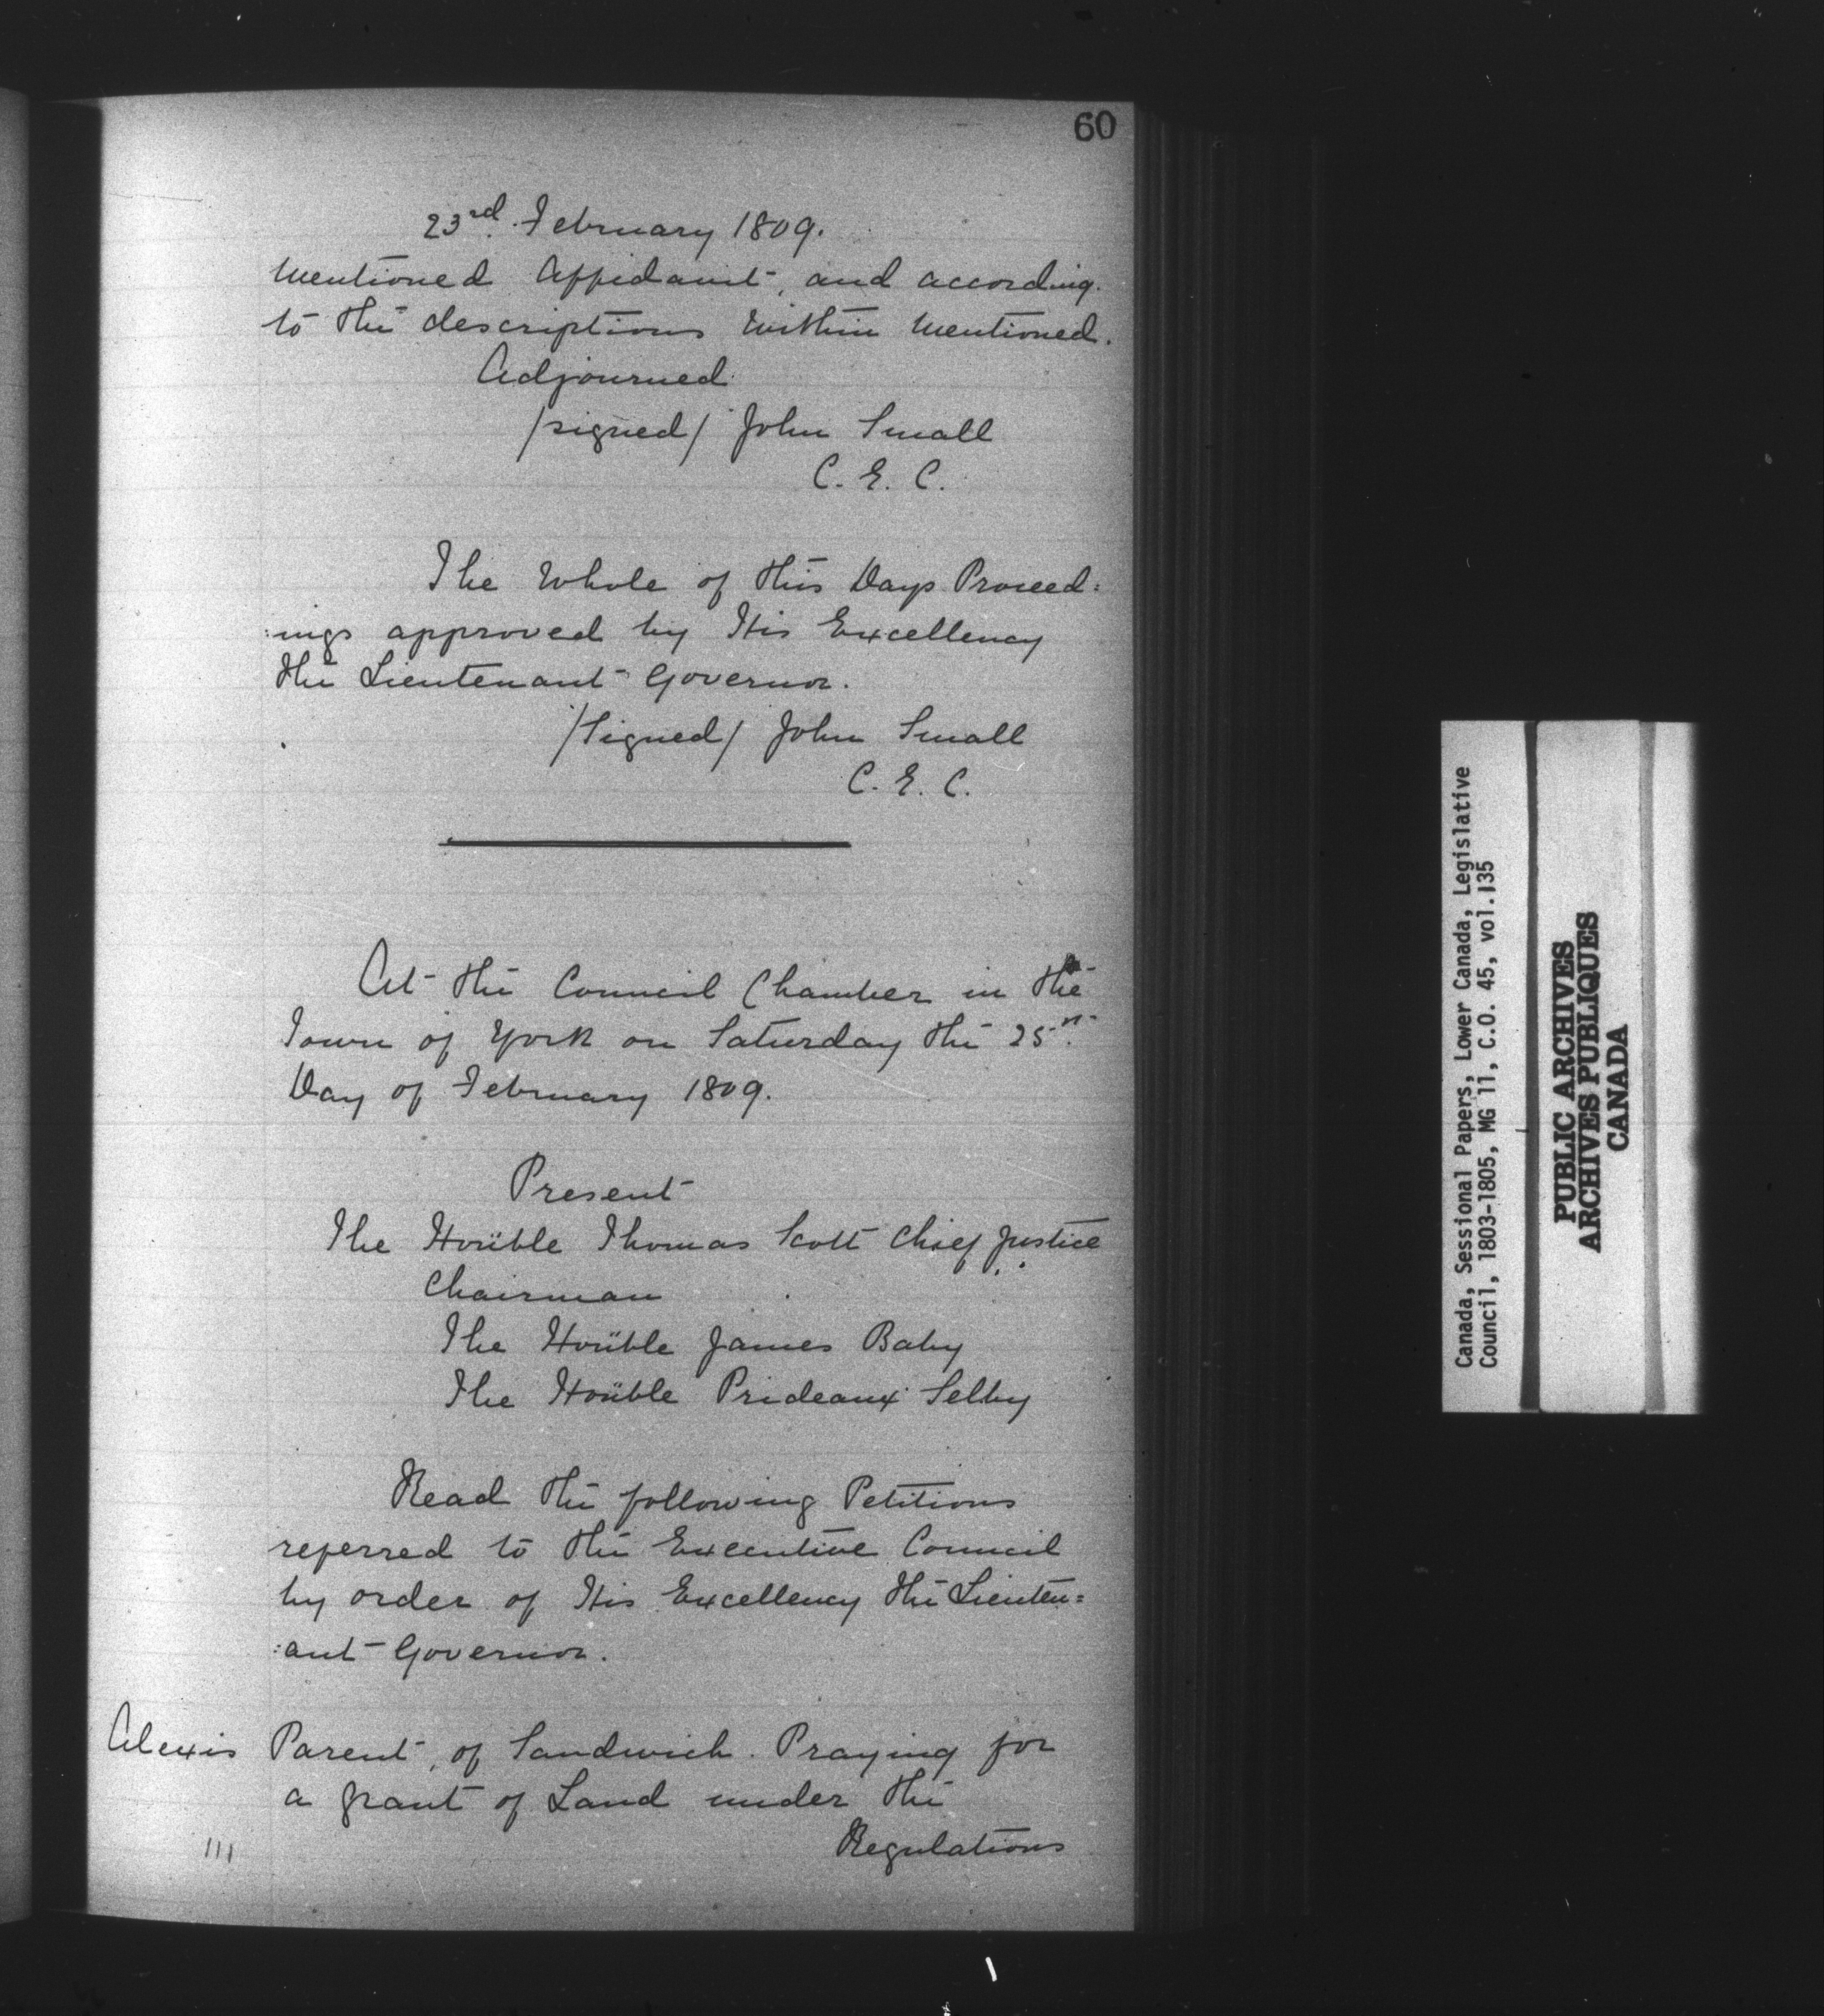 60
23rd. February 1809.
mentioned Affidavit, and according
to the descriptions within mentioned.
Adjourned
/signed/ John Small
C. E. C.
The Whole of this Days Proceed:
:ings approved by His Excellency
the Lieutenant Governor.
/Signed/ John Small
C. E. C.
At the Council Chamber in the
Town of York on Saturday the 25th.
Day of February 1809.
Present
The Honble Thomas Scott Chief Justice
Chairman
The Honble James Baby
The Honble Prideaux Selby
Read the following Petitions
referred to the Executive Council
by order of His Excellency the Lieuten=
:ant Governor.
Alexis Parent, of Sandwich. Praying for
a grant of Land under the
111
Regulations
Canada, Sessional Papers, Lower Canada, Legislative
Council, 1803-1805, MG 11, C.O. 45, vol.135
PUBLIC ARCHIVES
ARCHIVES PUBLIQUES
CANADA